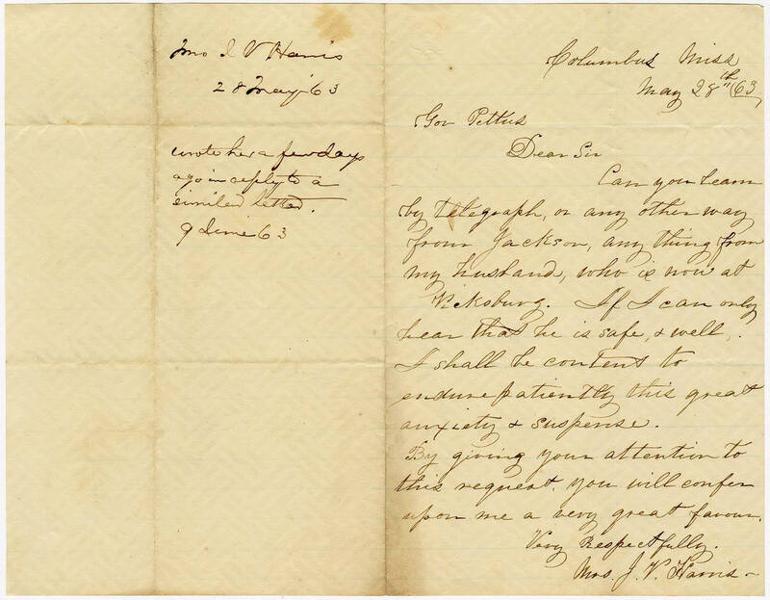 Mrs J V Harris
28 May 63
wrote her a few days
ago in reply to a
similar letter.
9 June 63
Columbus Miss
May 28th /63
Gov Pettus
Dear Sir
Can you learn
by telegraph, or any other way
from Jackson, any thing from
my husband, who is now at
Vicksburg. If I can only
hear that he is safe, & well,
I shall be content to
endure patiently this great
anxiety & suspense.
By giving your attention to
this request you will confer
upon me a very great favour.
Very Respectfully.
Mrs. J. V. Harris